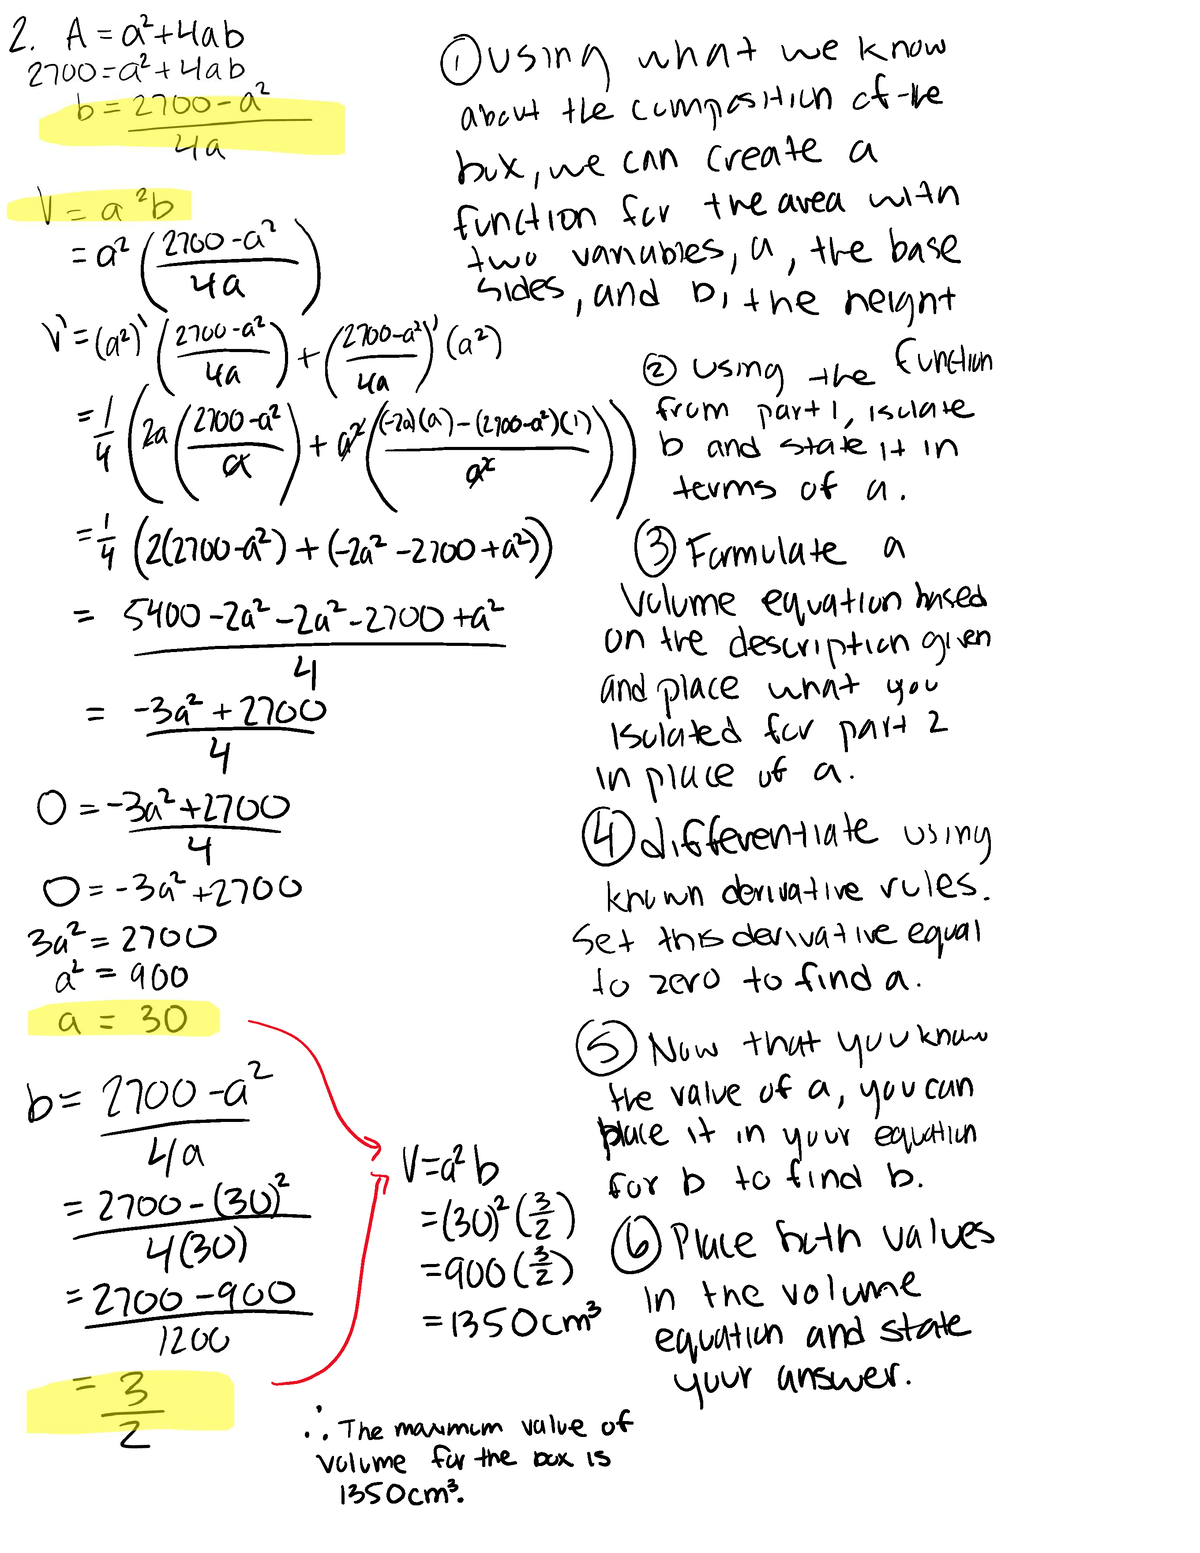 2. A = a²+4ab
2700=a²+4ab
b = 2700-a²
4a
V = a²b
= a² (2700-a²
4a)
V' = (a²)' (2700-a²
4a) + (2700-a²
4a)' (a²)
= 1/4 (2a (2700-a²
a) + a² ((-2a)(a)-(2700-a²)(1)
a²))
= 1/4 (2(2700-a²)+(-2a²-2700+a²))
= 5400-2a²-2a²-2700+a²
4
= -3a²+2700
4
0 = -3a²+2700
4
0 = -3a²+2700
3a² = 2700
a² = 900
a = 30
b = 2700-a²
4a
= 2700-(30)²
4(30)
= 2700-900
1200
= 3
2
V=a²b
=(30)²(3/2)
=900(3/2)
=1350cm³
∴ The maximum value of
volume for the box is
1350cm³.
① using what we know
about the composition of the
box, we can create a
function for the area with
two variables, a, the base
sides, and b, the height
② using the function
from part 1, isolate
b and state it in
terms of a.
③ Formulate a
volume equation based
on the description given
and place what you
isolated for part 2
in place of a.
④ differentiate using
known derivative rules.
Set this derivative equal
to zero to find a.
⑤ Now that you know
the value of a, you can
place it in your equation
for b to find b.
⑥ Place both values
in the volume
equation and state
your answer.